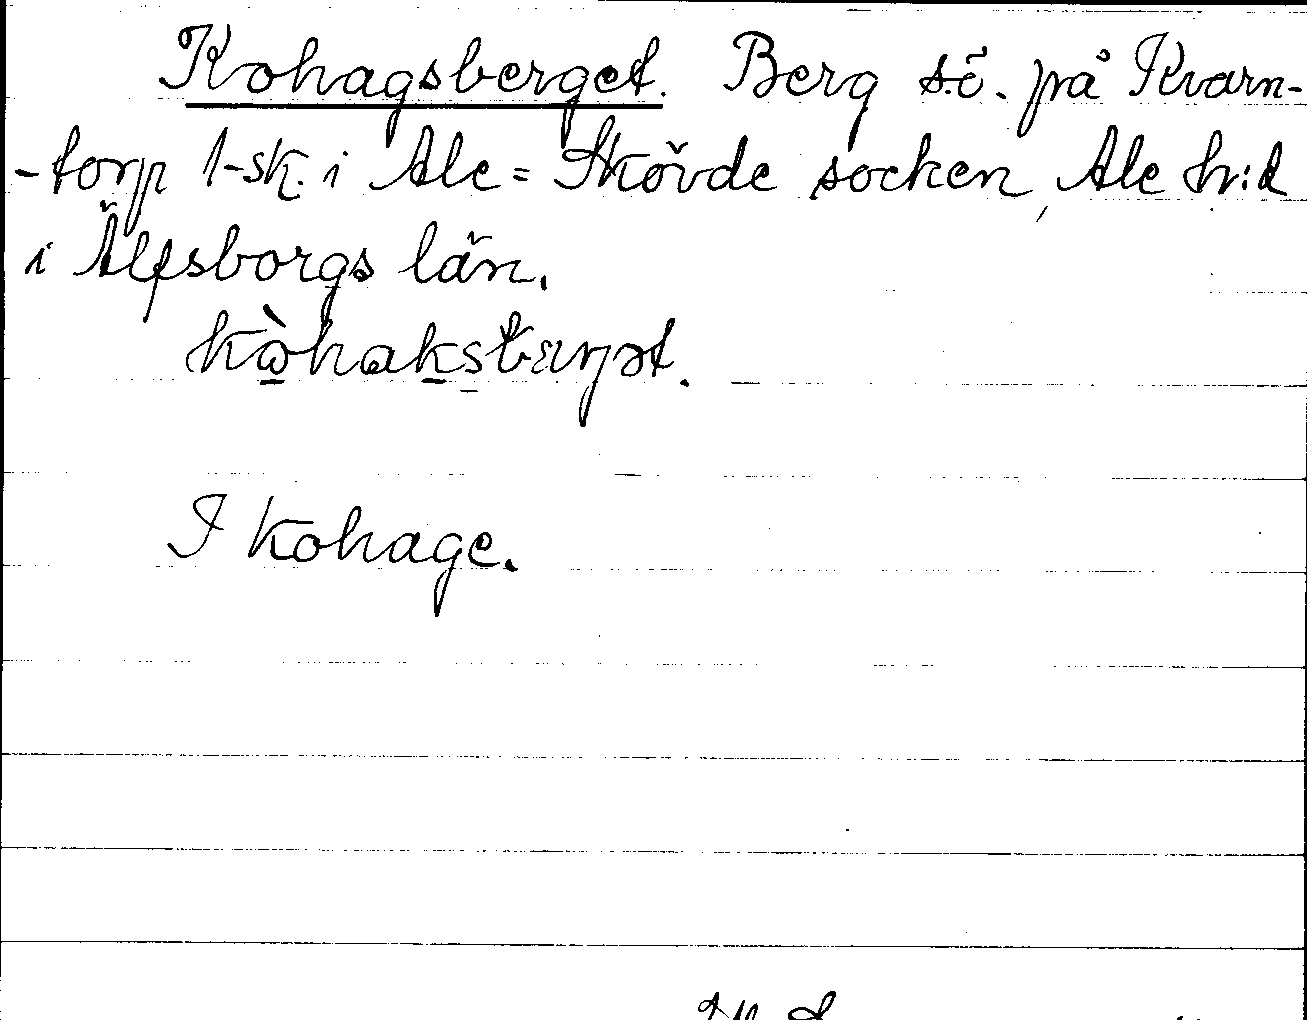 Kohagsberget. Berg s.ö. på Kvarn-
-torp 1-sk. i Ale=Skövde socken, Ale h:d
i Älfsborgs län.
I kohage.